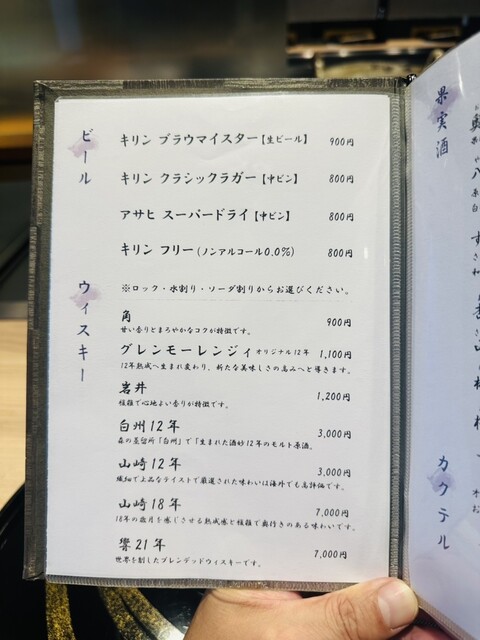 ビール
キリン ブラウマイスター【生ビール】 900円
キリン クラシックラガー【中ビン】 800円
アサヒ スーパードライ【中ビン】 800円
キリン フリー(ノンアルコール0.0%) 800円
ウィスキー
※ロック・水割り・ソーダ割りからお選びください。
角 900円
甘い香りとまろやかなコクが特徴です。
グレンモーレンジィ オリジナル12年 1,100円
12年熟成へ生まれ変わり、新たな美味しさの高みへと導きます。
岩井 1,200円
複雑で心地よい香りが特徴です。
白州12年 3,000円
森の蒸留所「白州」で「生まれた酒妙12年のモルト原酒。
山崎12年 3,000円
繊細で上品なテイストで厳選された味わいは海外でも高評価です。
山崎18年 7,000円
18年の歳月を感じさせる熟成感と複雑で奥行きのある味わいです。
響21年 7,000円
世界を制したブレンデッドウィスキーです。
果実酒
カクテル